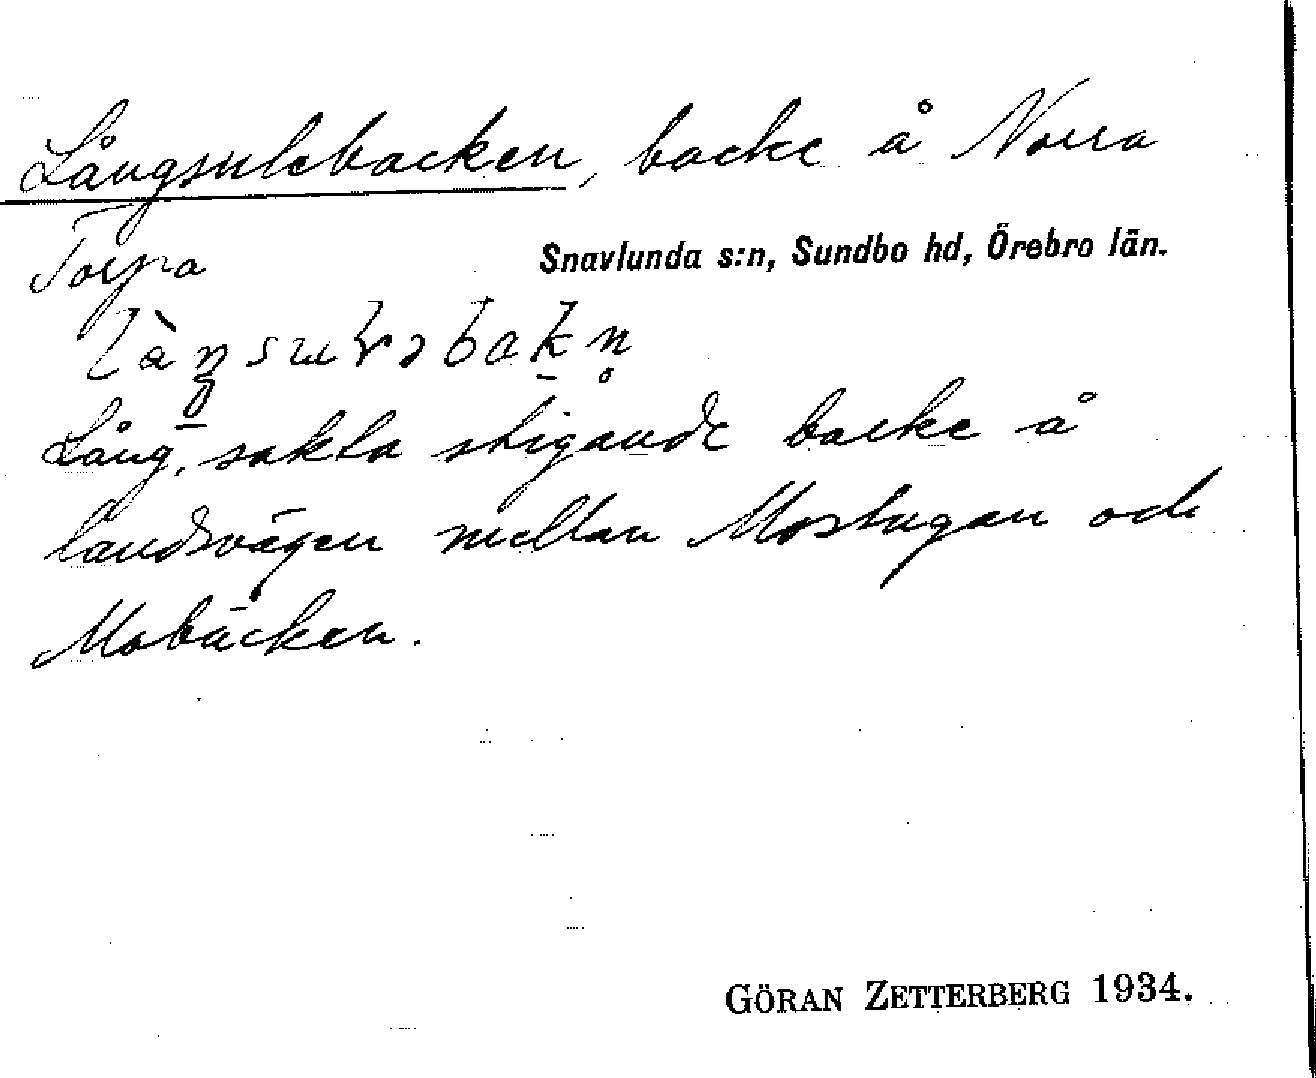 Långsulebacken, backe å Norra
Torpa
Snavlunda s:n, Sundbo hd, Örebro län.
Lång, sakta stigande backe å
landsvägen mellan Mostugan och
Mobäcken.
GÖRAN ZETTERBERG 1934.